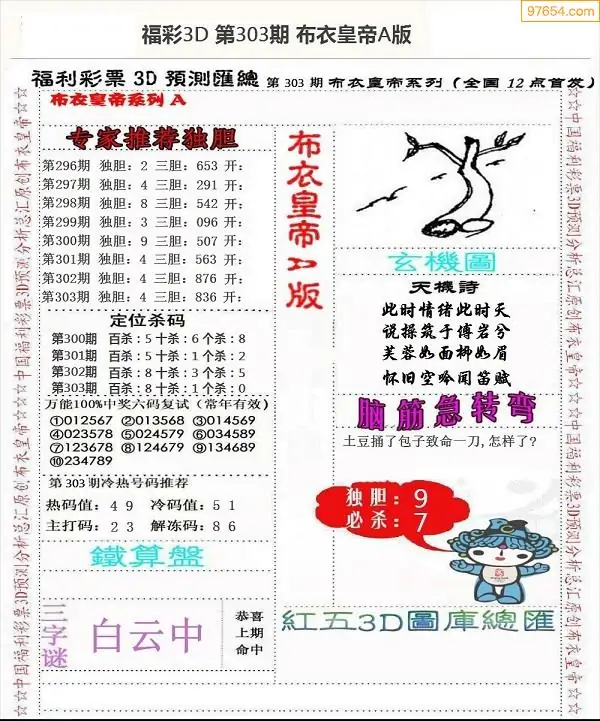 97654.com
福彩3D 第303期 布衣皇帝A版
福利彩票 3D 預測匯總 第 303 期 布衣皇帝系列 (全国 12 点首发)
布衣皇帝系列 A
专家推荐独胆
第296期 独胆: 2 三胆: 653 开:
第297期 独胆: 4 三胆: 291 开:
第298期 独胆: 8 三胆: 542 开:
第299期 独胆: 3 三胆: 096 开:
第300期 独胆: 9 三胆: 507 开:
第301期 独胆: 4 三胆: 563 开:
第302期 独胆: 4 三胆: 876 开:
第303期 独胆: 4 三胆: 836 开:
定位杀码
第300期 百杀: 5 十杀: 6 个杀: 8
第301期 百杀: 5 十杀: 1 个杀: 2
第302期 百杀: 8 十杀: 3 个杀: 5
第303期 百杀: 8 十杀: 1 个杀: 0
万能100%中奖六码复试 (常年有效)
①012567 ②013568 ③014569
④023578 ⑤024579 ⑥034589
⑦123678 ⑧124679 ⑨134689
⑩234789
第 303 期冷热号码推荐
热码值: 4 9 冷码值: 5 1
主打码: 2 3 解冻码: 8 6
鐵算盤
三字谜
白云中
恭喜
上期
命中
布衣皇帝A版
玄機圖
天機詩
此时情绪此时天
说操筑于傅岩兮
芙蓉如面柳如眉
怀旧空吟闻笛赋
脑筋急转弯
土豆捅了包子致命一刀,怎样了?
独胆: 9
必杀: 7
紅五3D圖庫總匯
☆☆中国福利彩票3D预测分析总汇原创布衣皇帝☆☆
☆☆中国福利彩票3D预测分析总汇原创布衣皇帝☆☆